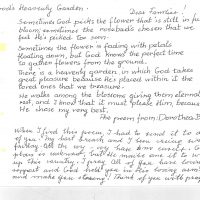 God's Heavenly Garden. Dear Families!
Sometimes God picks the flower that's still in full
bloom, sometimes the rosebud's chosen that we
feel He's picked too soon.
Sometimes the flower is fading with petals
floating down, but God knows the perfect time
to gather flowers from the ground.
There is a heavenly garden, in which God takes
great pleasure because He's placed within it the
loved ones that we treasure.
He walks among the blossoms giving them eternal
rest, and I know that it must please Him, because
He chose my very best.
The poem from: Dorothea B
When I find this poem, I had to send it to
of you. My best friend and I
All the way, we have him surely. God
plan is unknown, but He wants one it to
up this country. I pray all of you have loving
support and God held you in His loving arms
and make you strong! Think of you with pray